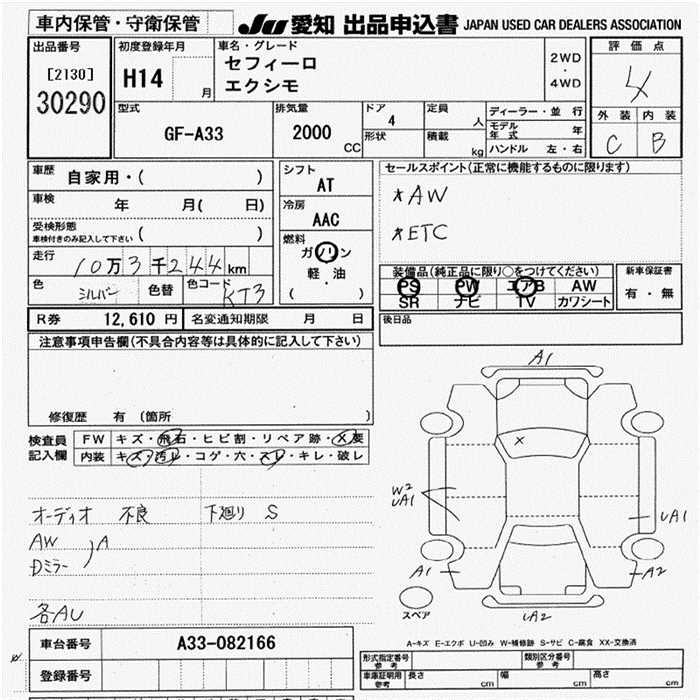 車内保管・守衛保管
JU 愛知 出品申込書 JAPAN USED CAR DEALERS ASSOCIATION
出品番号
[2130]
30290
初度登録年月
H14 月
車名・グレード
セフィーロ
エクシモ
2WD
・
4WD
評価点
4
外装 内装
C B
型式
GF-A33
排気量
2000 CC
ドア
4
形状
定員
人
積載
kg
ディーラー・並 行
モデル年式 年
ハンドル 左・右
車歴
自家用・( )
車検 年 月( 日)
受検形態
車検付きのみ記入して下さい ( )
走行 10万3千244km
色 シルバー 色替 色コード KT3
シフト
AT
冷房
AAC
燃料
ガソリン
軽・油
( )
セールスポイント(正常に機能するものに限ります)
*AW
*ETC
装備品(純正品に限り○をつけてください)
PS PW エアB AW
SR ナビ TV カワシート
新車保証書
有・無
R券 12,610 円 名変通知期限 月 日
後日品
注意事項申告欄(不具合内容等は具体的に記入して下さい)
修復歴 有 (箇所 )
検査員
記入欄
FW キズ・飛石・ヒビ割・リペア跡・X要
内装 キズ・汚レ・コゲ・穴・スレ・キレ・破レ
オーディオ 不良 下廻り S
AW
Dミラー
A
各AU
A1
X
W2
UA1
UA1
A1
A2
スペア
UA2
A-キズ E-エクボ U-凹み W-補修跡 S-サビ C-腐食 XX-交換済
車台番号 A33-082166
登録番号
形式指定番号
参考
類別区分番号
参考
車庫証明用
参考
長さ cm 幅 cm 高さ cm